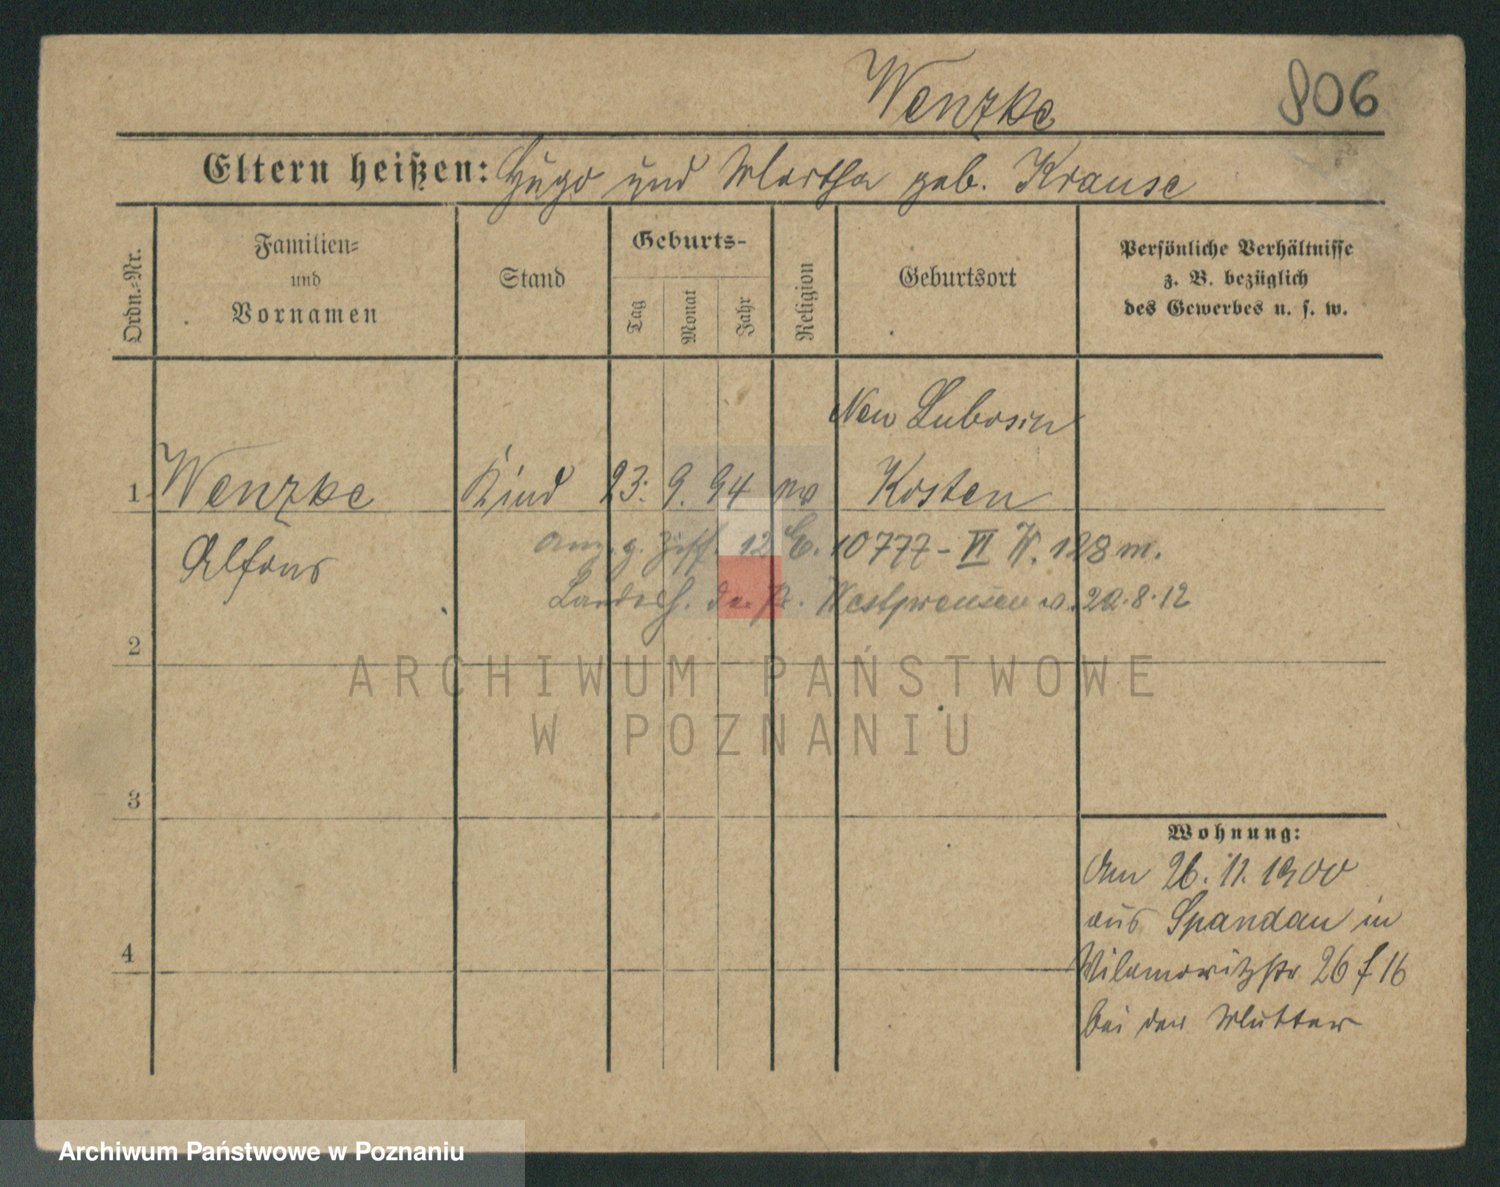 Wenzke 806
Eltern heißen: Hugo und Martha geb. Krause
Ordn.-Nr.
Familien-
und
Vornamen
Stand
Geburts-
Tag
Monat
Jahr
Religion
Geburtsort
Persönliche Verhältnisse
z. B. bezüglich
des Gewerbes u. s. w.
Neu Lubosin
1 Wenzke Kind 23. 9. 94 ev Kosten
Alfons
12 10777 - VI W. 128 m.
Landesh. Westpreussen v. 20.8.12
2
3
4
Wohnung:
Am 26. 11. 1900
aus Spandau in
Wilamowitzstr 26 f 16
bei der Mutter
ARCHIWUM PAŃSTWOWE
W POZNANIU
Archiwum Państwowe w Poznaniu